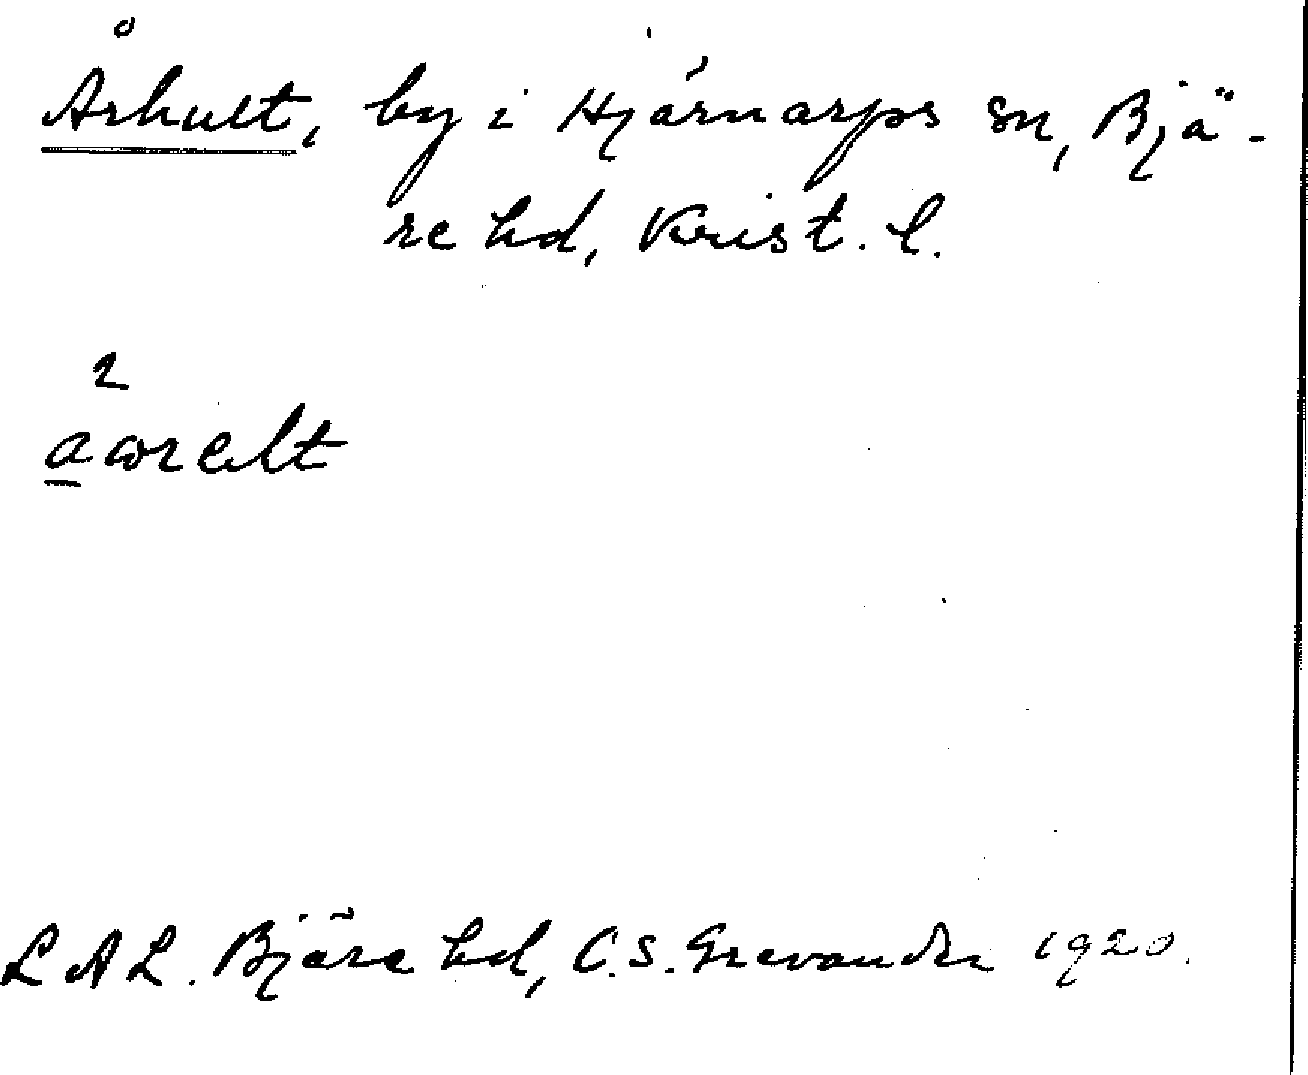 Århult, by i Hjärnarps sn, Bjä-
re hd, Krist. l.
2
LAL. Bjäre hd, C.S. Grevander 1920.